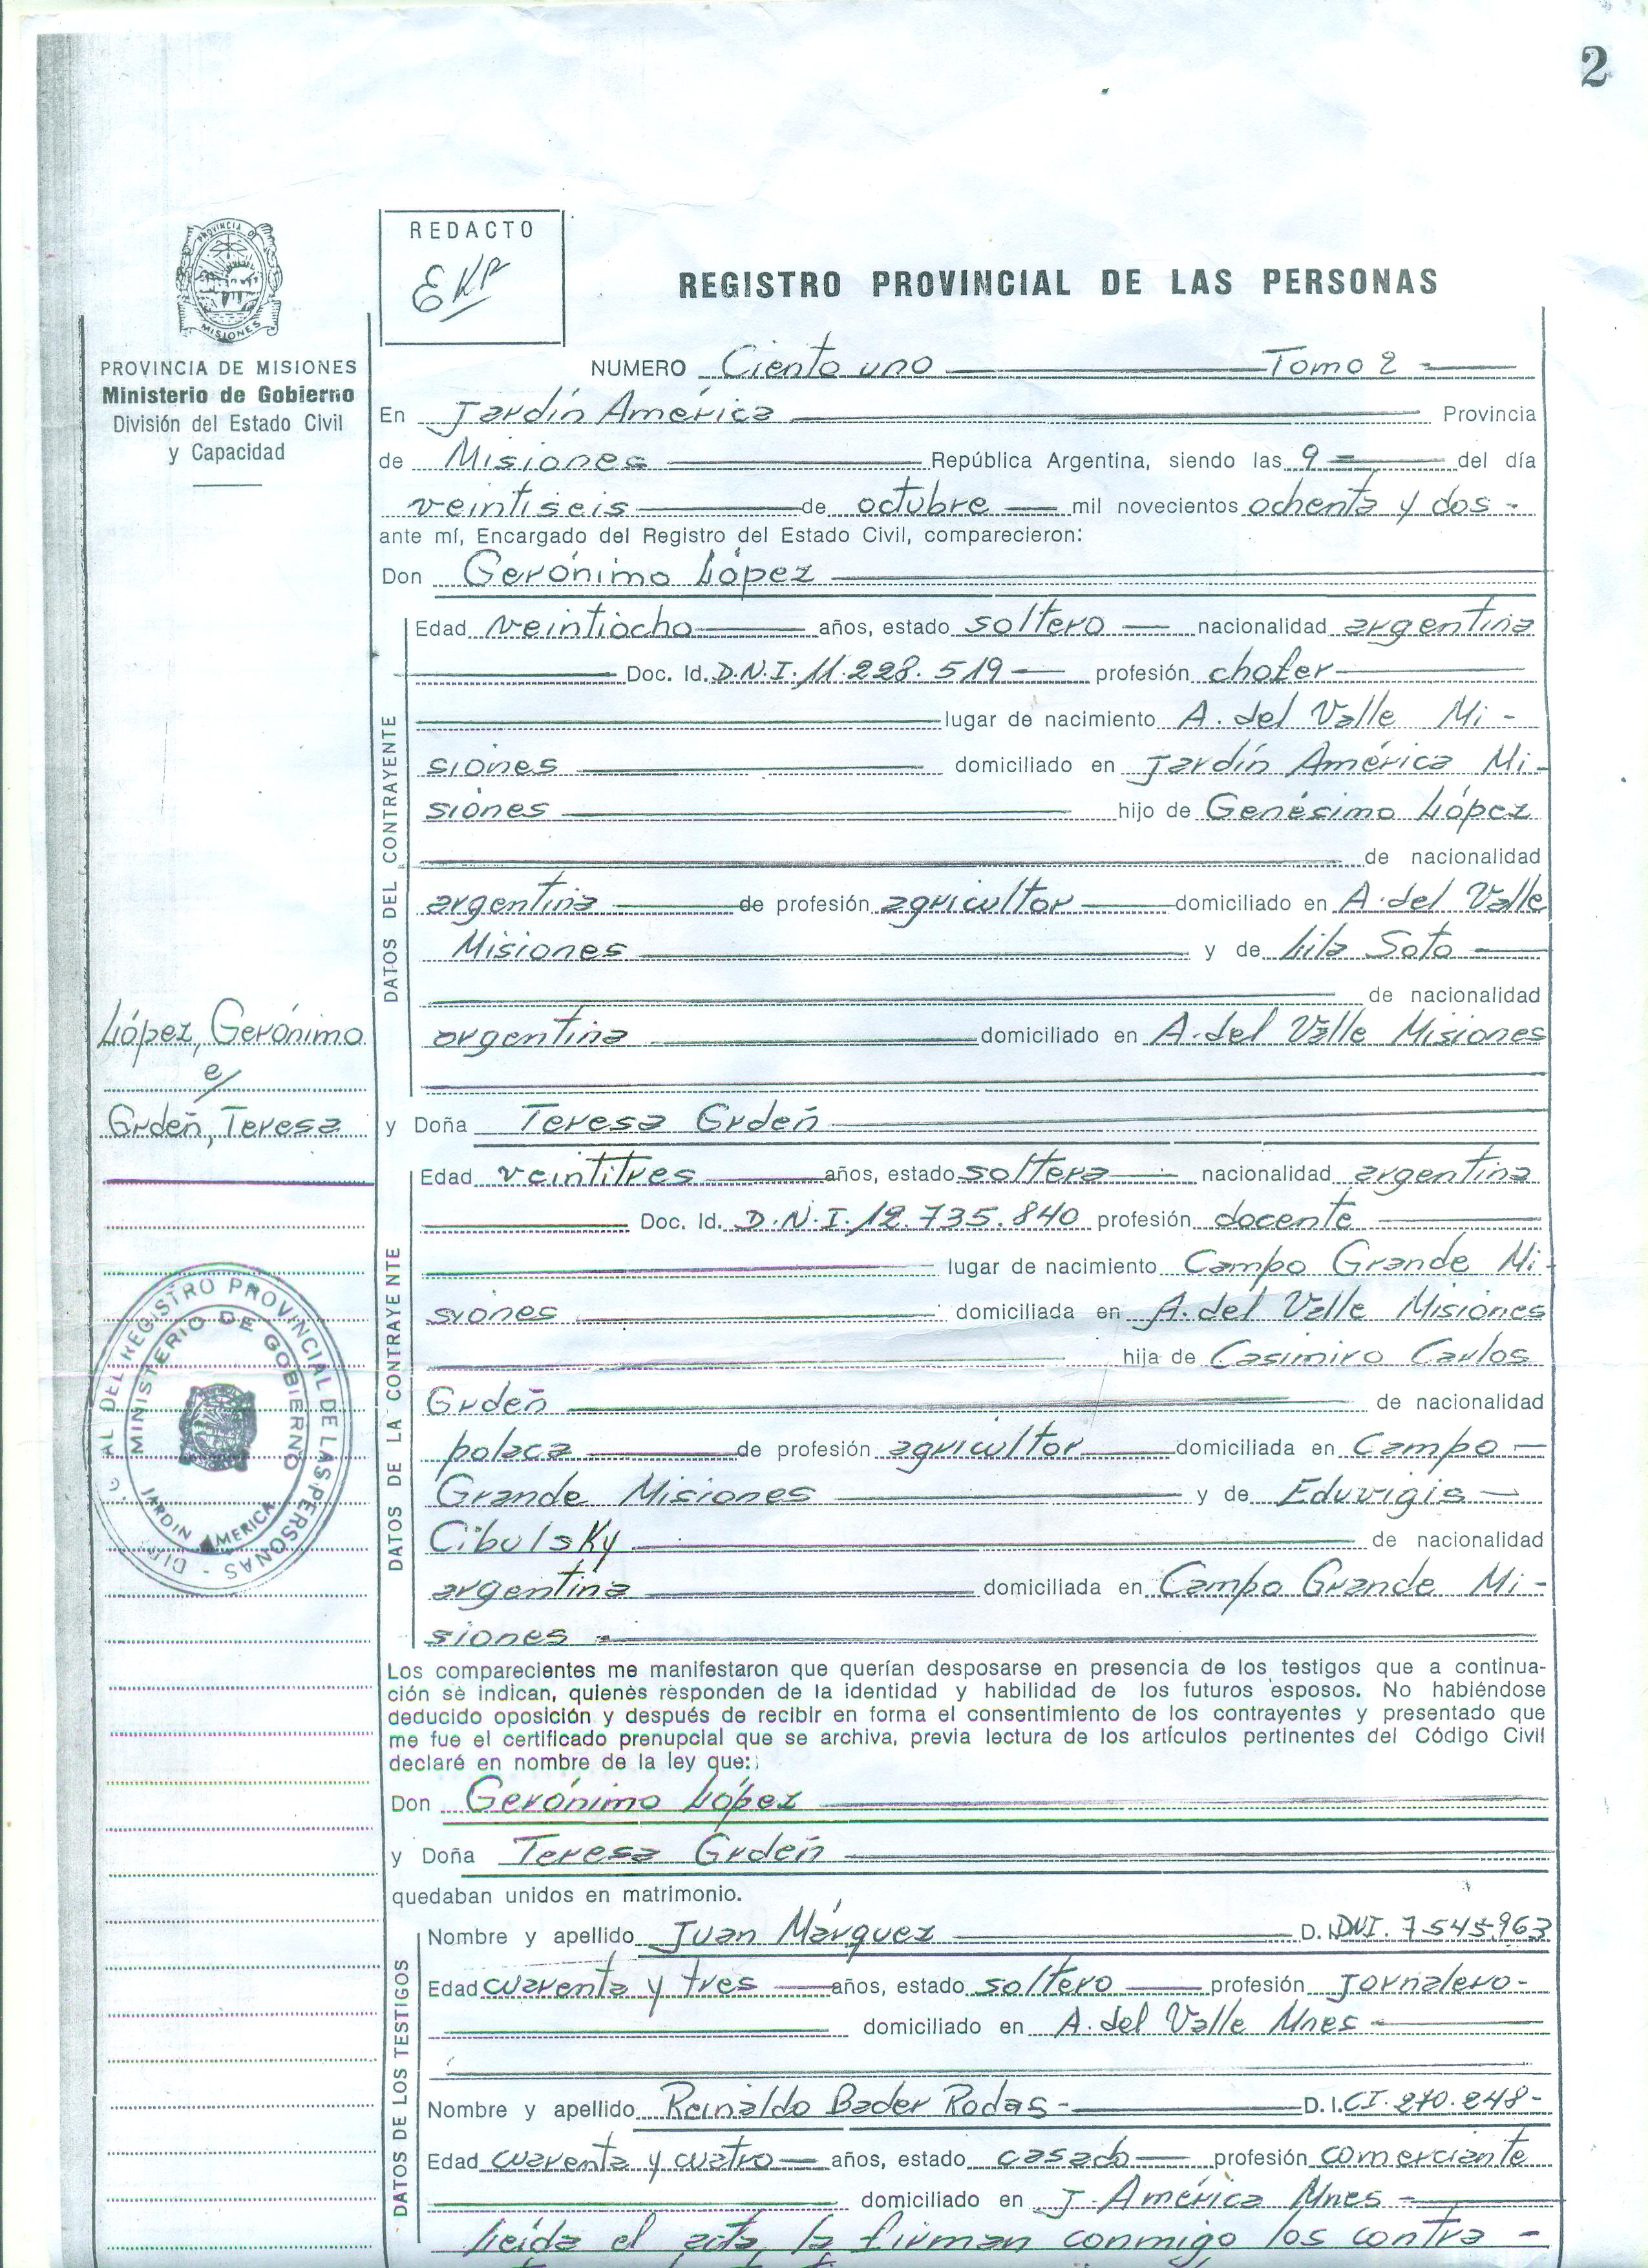 2
PROVINCIA DE
MISIONES
REDACTO
REGISTRO PROVINCIAL DE LAS PERSONAS
PROVINCIA DE MISIONES
Ministerio de Gobierno
División del Estado Civil
y Capacidad
NUMERO Ciento uno Tomo 2
En Jardín América Provincia
de Misiones República Argentina, siendo las 9 del día
veintiseis de octubre mil novecientos ochenta y dos
ante mí, Encargado del Registro del Estado Civil, comparecieron:
Don Gerónimo López
DATOS DEL CONTRAYENTE
Edad veintiocho años, estado soltero nacionalidad argentina
Doc. Id. D.N.I. 11.228.519 profesión chofer
lugar de nacimiento A. del Valle Mi-
siones domiciliado en Jardín América Mi-
siones hijo de Genésimo López
de nacionalidad
argentina de profesión agricultor domiciliado en A. del Valle
Misiones y de Lila Soto
de nacionalidad
argentina domiciliado en A. del Valle Misiones
López, Gerónimo
c/
Grdeñ, Teresa
y Doña Teresa Grdeñ
DATOS DE LA CONTRAYENTE
Edad veintitres años, estado soltera nacionalidad argentina
Doc. Id. D.N.I. 12.735.840 profesión docente
lugar de nacimiento Campo Grande Mi-
siones domiciliada en A. del Valle Misiones
hija de Casimiro Carlos
Grdeñ de nacionalidad
polaca de profesión agricultor domiciliada en Campo
Grande Misiones y de Eduvigis
Cibulsky de nacionalidad
argentina domiciliada en Campo Grande Mi-
siones
AL DEL REGISTRO PROVINCIAL DE LAS PERSONAS -
MINISTERIO DE GOBIERNO
JARDIN AMERICA
Los comparecientes me manifestaron que querían desposarse en presencia de los testigos que a continua-
ción se indican, quienes responden de la identidad y habilidad de los futuros esposos. No habiéndose
deducido oposición y después de recibir en forma el consentimiento de los contrayentes y presentado que
me fue el certificado prenupcial que se archiva, previa lectura de los artículos pertinentes del Código Civil
declaré en nombre de la ley que:
Don Gerónimo López
y Doña Teresa Grdeñ
quedaban unidos en matrimonio.
DATOS DE LOS TESTIGOS
Nombre y apellido Juan Márquez D.I. DNI. 7545.963
Edad cuarenta y tres años, estado soltero profesión jornalero-
domiciliado en A. del Valle Mnes
Nombre y apellido Reinaldo Bader Rodas D.I. CI. 270.248-
Edad cuarenta y cuatro años, estado casado profesión comerciante
domiciliado en J. América Mnes-
Leída el acta, la firman conmigo los contra-